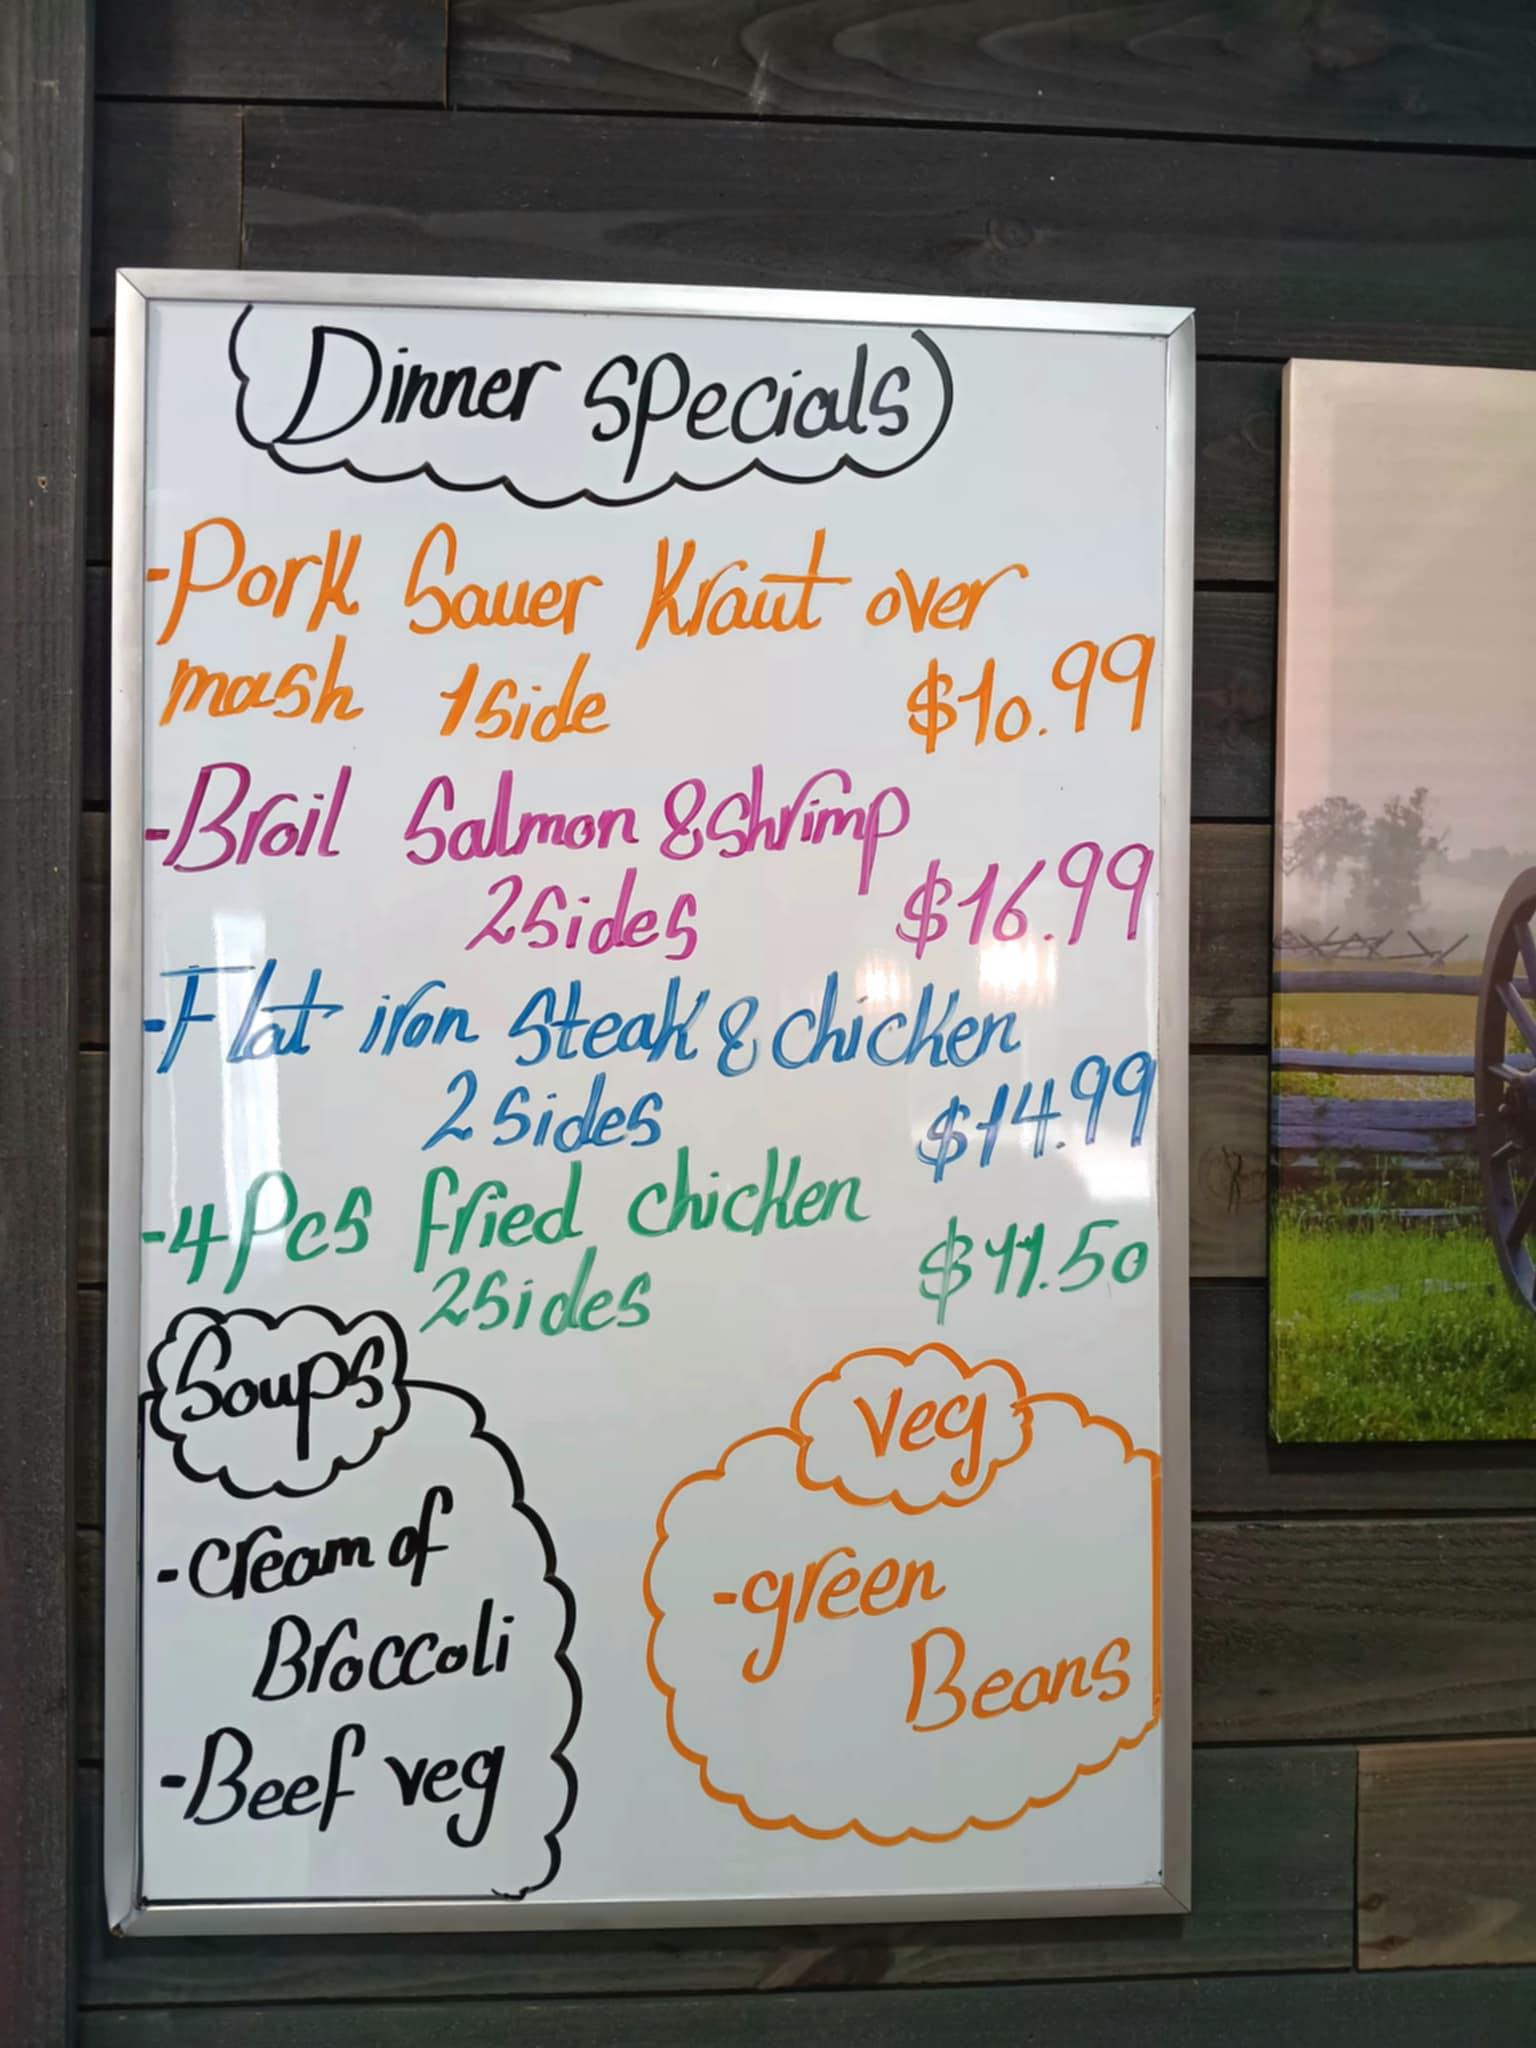 Dinner Specials
-Pork Sauer Kraut over
mash 1 side $10.99
-Broil Salmon & shrimp
2 Sides $16.99
-Flat iron Steak & chicken
2 Sides $14.99
-4 Pcs fried chicken
2 Sides $11.50
Soups
-Cream of
Broccoli
-Beef veg
Veg
-green
Beans